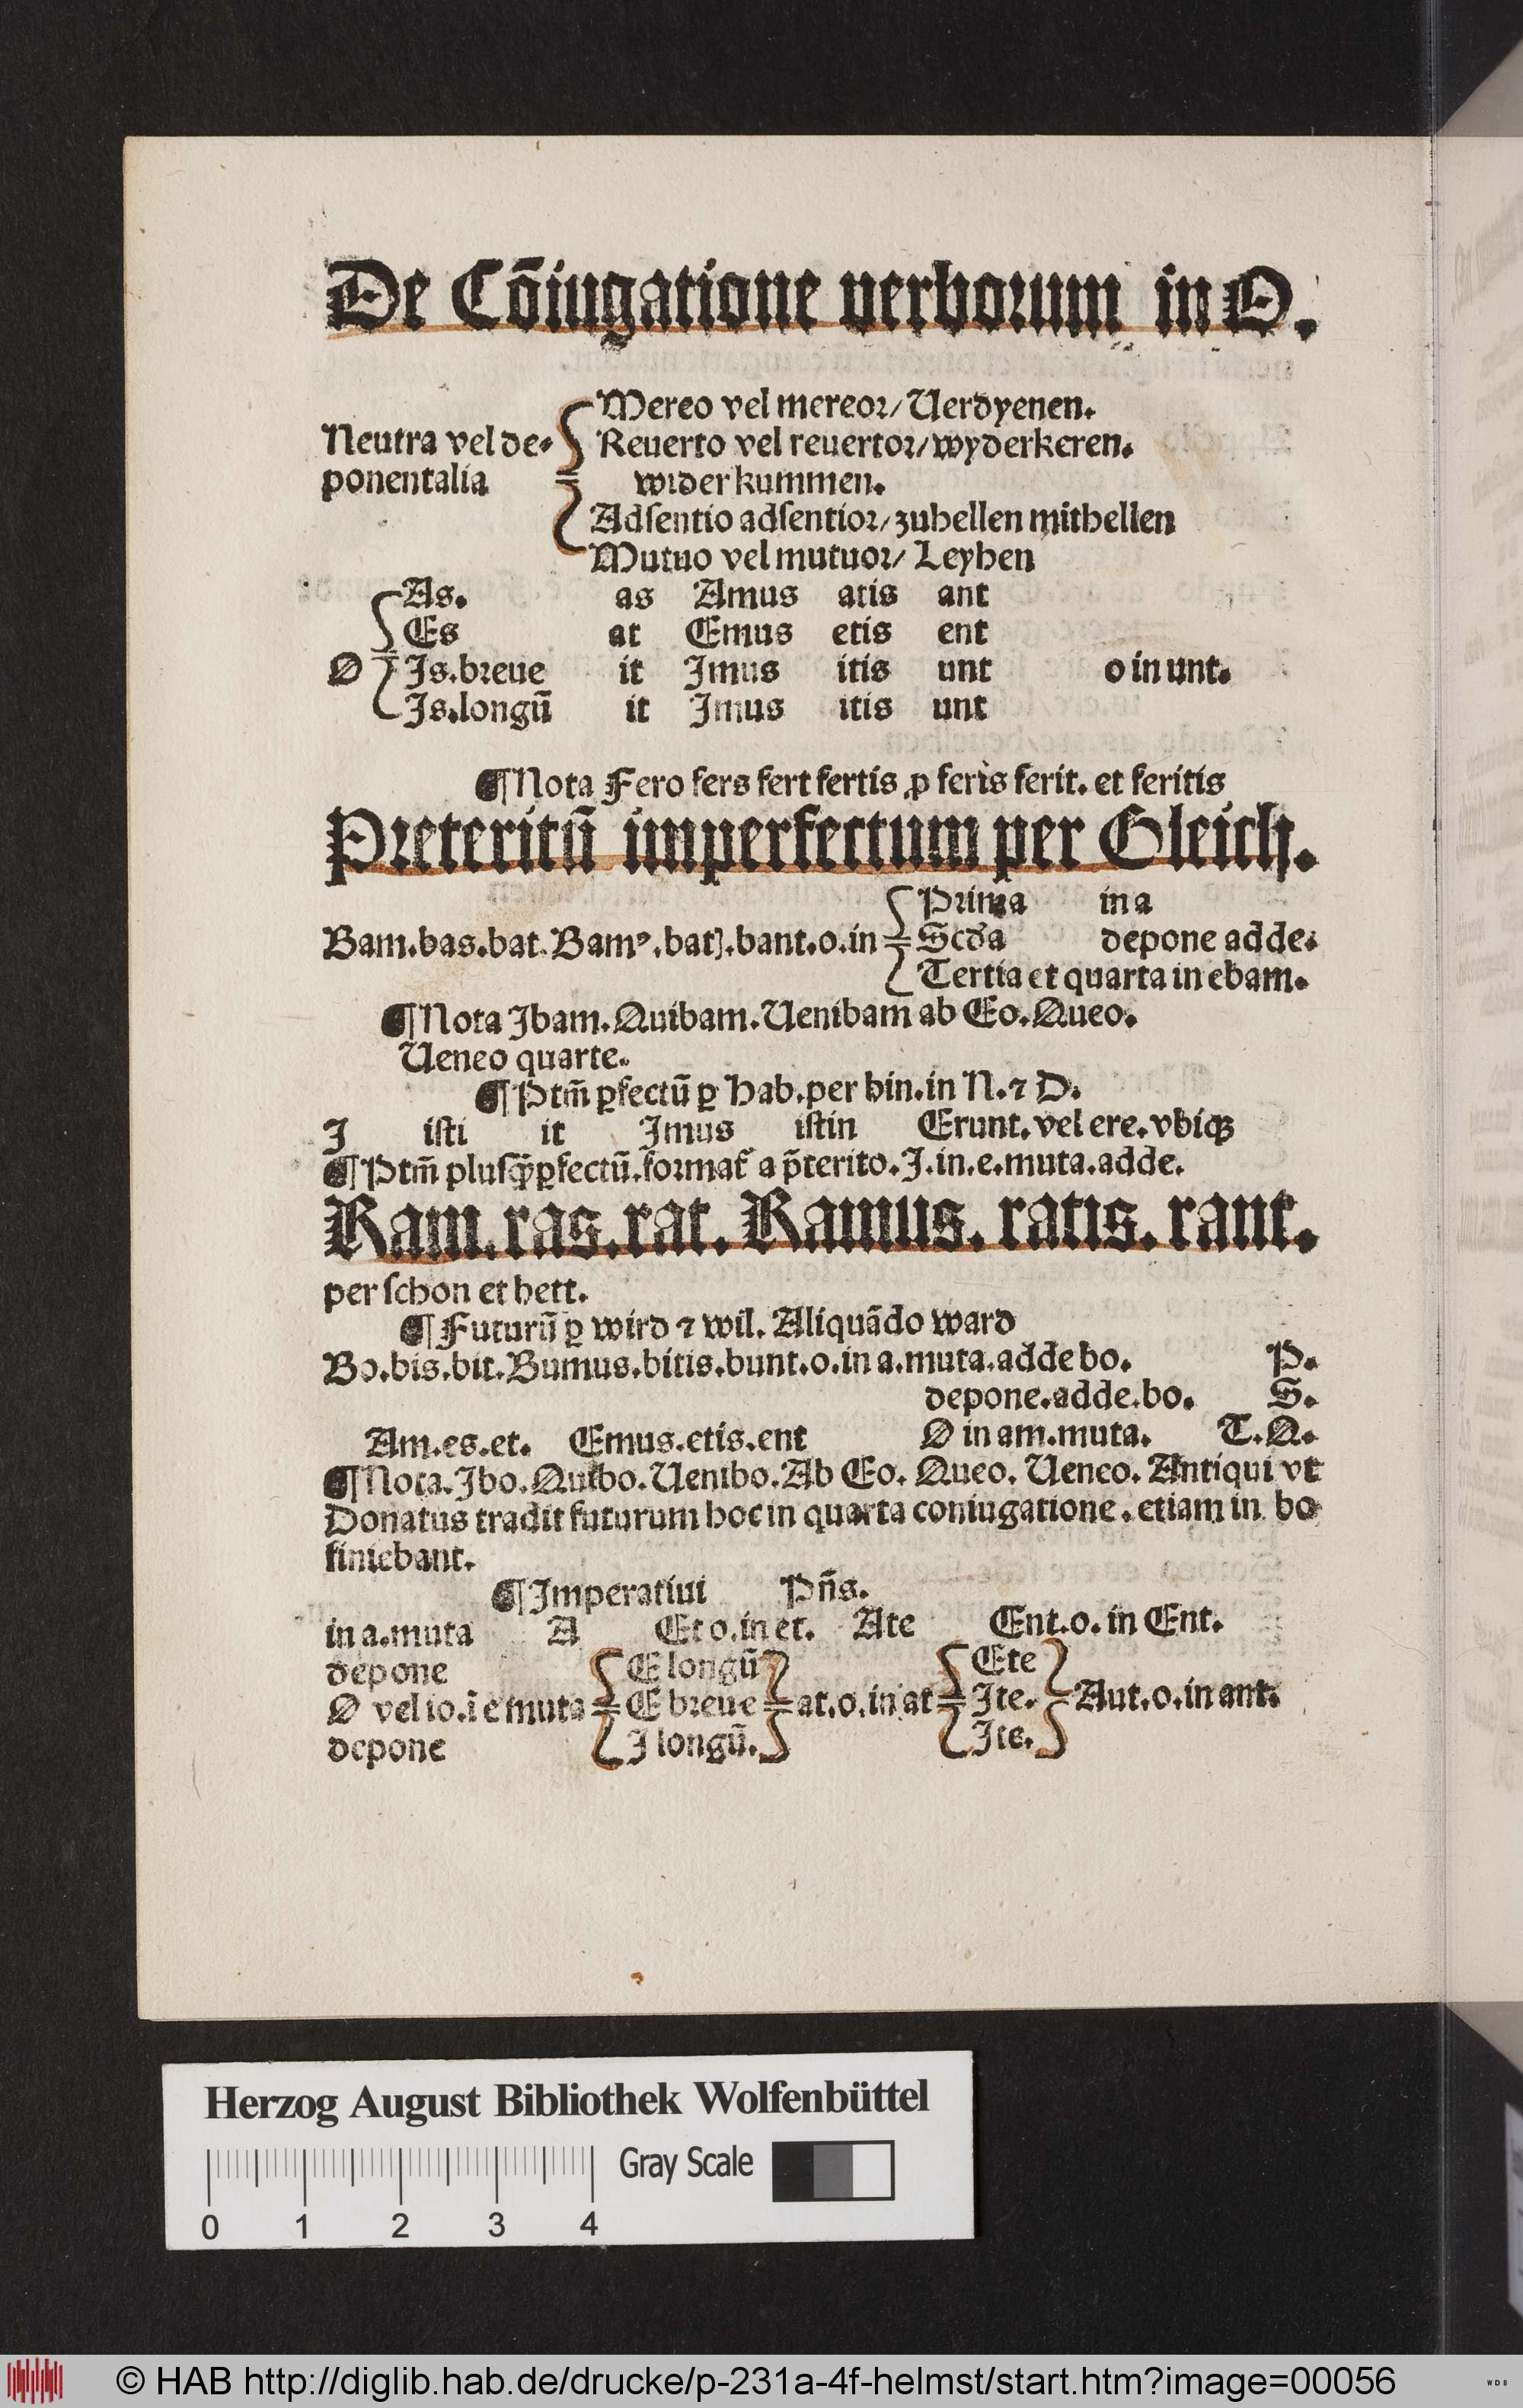 De Cõiugatione verborum in O.
Mereo vel mereor/ Uerdyenen.
Neutra vel de⸗ Reuerto vel reuertor/ wyderkeren.
ponentalia widerkummen.
Adſentio adſentior/ zuhellen mithellen
Mutuo vel mutuor/ Leyhen
As. as Amus atis ant
Es at Emus etis ent
O Is.breue it Imus itis unt o in unt.
Is.longũ it Imus itis unt
¶Nota Fero fers fert fertis ꝓ feris ferit. et feritis
Preteritũ imperfectum per Gleich.
Prima in a
Bam.bas.bat.Bamꝰ.batꝭ.bant.o.in Scďa depone adde.
Tertia et quarta in ebam.
¶Nota Ibam.Quibam.Uenibam ab Eo.Queo.
Ueneo quarte.
¶Ptm̃ ꝑfectũ ꝑ Hab.per bin.in N.⁊ D.
I iſti it Imus iſtin Erunt.vel ere.vbiqꝫ
¶Ptm̃ pluſq̃ꝑfectũ.format᷑ a p̃terito.I.in.e.muta.adde.
Ram.ras.rat.Ramus.ratis.rant.
per ſchon et hett.
¶Futurũ ꝑ wird ⁊ wil. Aliquãdo ward
Bo.bis.bit.Bumus.bitis.bunt.o.in a.muta.adde bo. P.
depone.adde.bo. S.
Am.es.et. Emus.etis.ent O in am.muta. T.Q.
¶Nota.Ibo.Quibo.Uenibo.Ab Eo. Queo. Ueneo. Antiqui vt
Donatus tradit futurum hoc in quarta coniugatione.etiam in bo
finiebant.
¶Imperatiui Pñs.
in a.muta A Et o.in et. Ate Ent.o. in Ent.
depone E longũ Ete
O vel io.i e muta E breue at.o.in at Ite. Aut.o.in ant.
depone I longũ. Ite.
Herzog August Bibliothek Wolfenbüttel
Gray Scale
0 1 2 3 4
© HAB http://diglib.hab.de/drucke/p-231a-4f-helmst/start.htm?image=00056
WDB